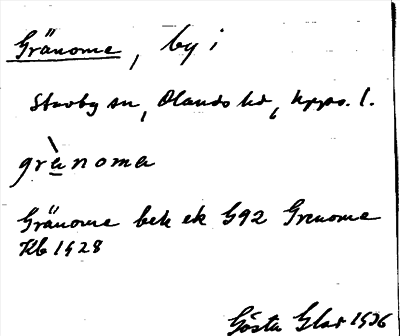 Gränome, by i
Stavby sn, Olands hd, Upps. l.
grànoma
Gränome bek ek G92 Grenome
Kb 1928
Gösta Glas 1936